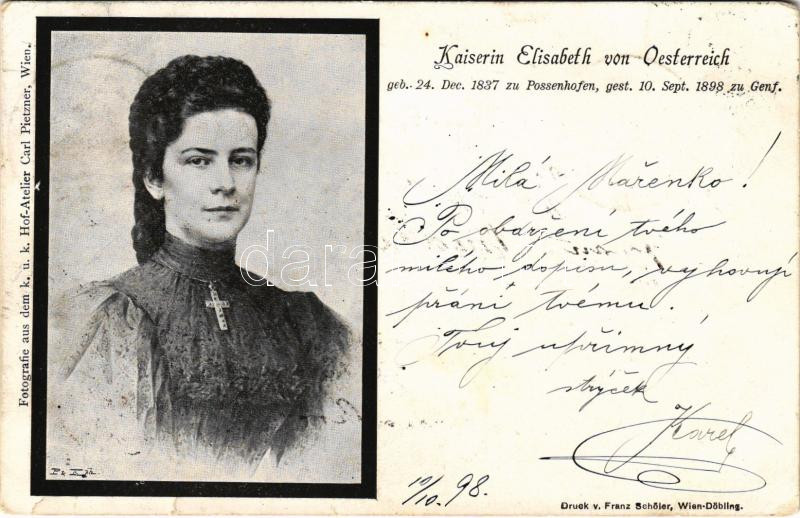 Kaiserin Elisabeth von Oesterreich
geb. 24. Dec. 1837 zu Possenhofen, gest. 10. Sept. 1898 zu Genf.
Fotografie aus dem k. u. k. Hof-Atelier Carl Pietzner, Wien.
Milá Mařenko!
Po obdržení tvého
milého dopisu, vyhovuji
přání tvému.
Tvůj upřímný
strýček
Karel
10/10. 98.
darabanth
Druck v. Franz Schöler, Wien-Döbling.